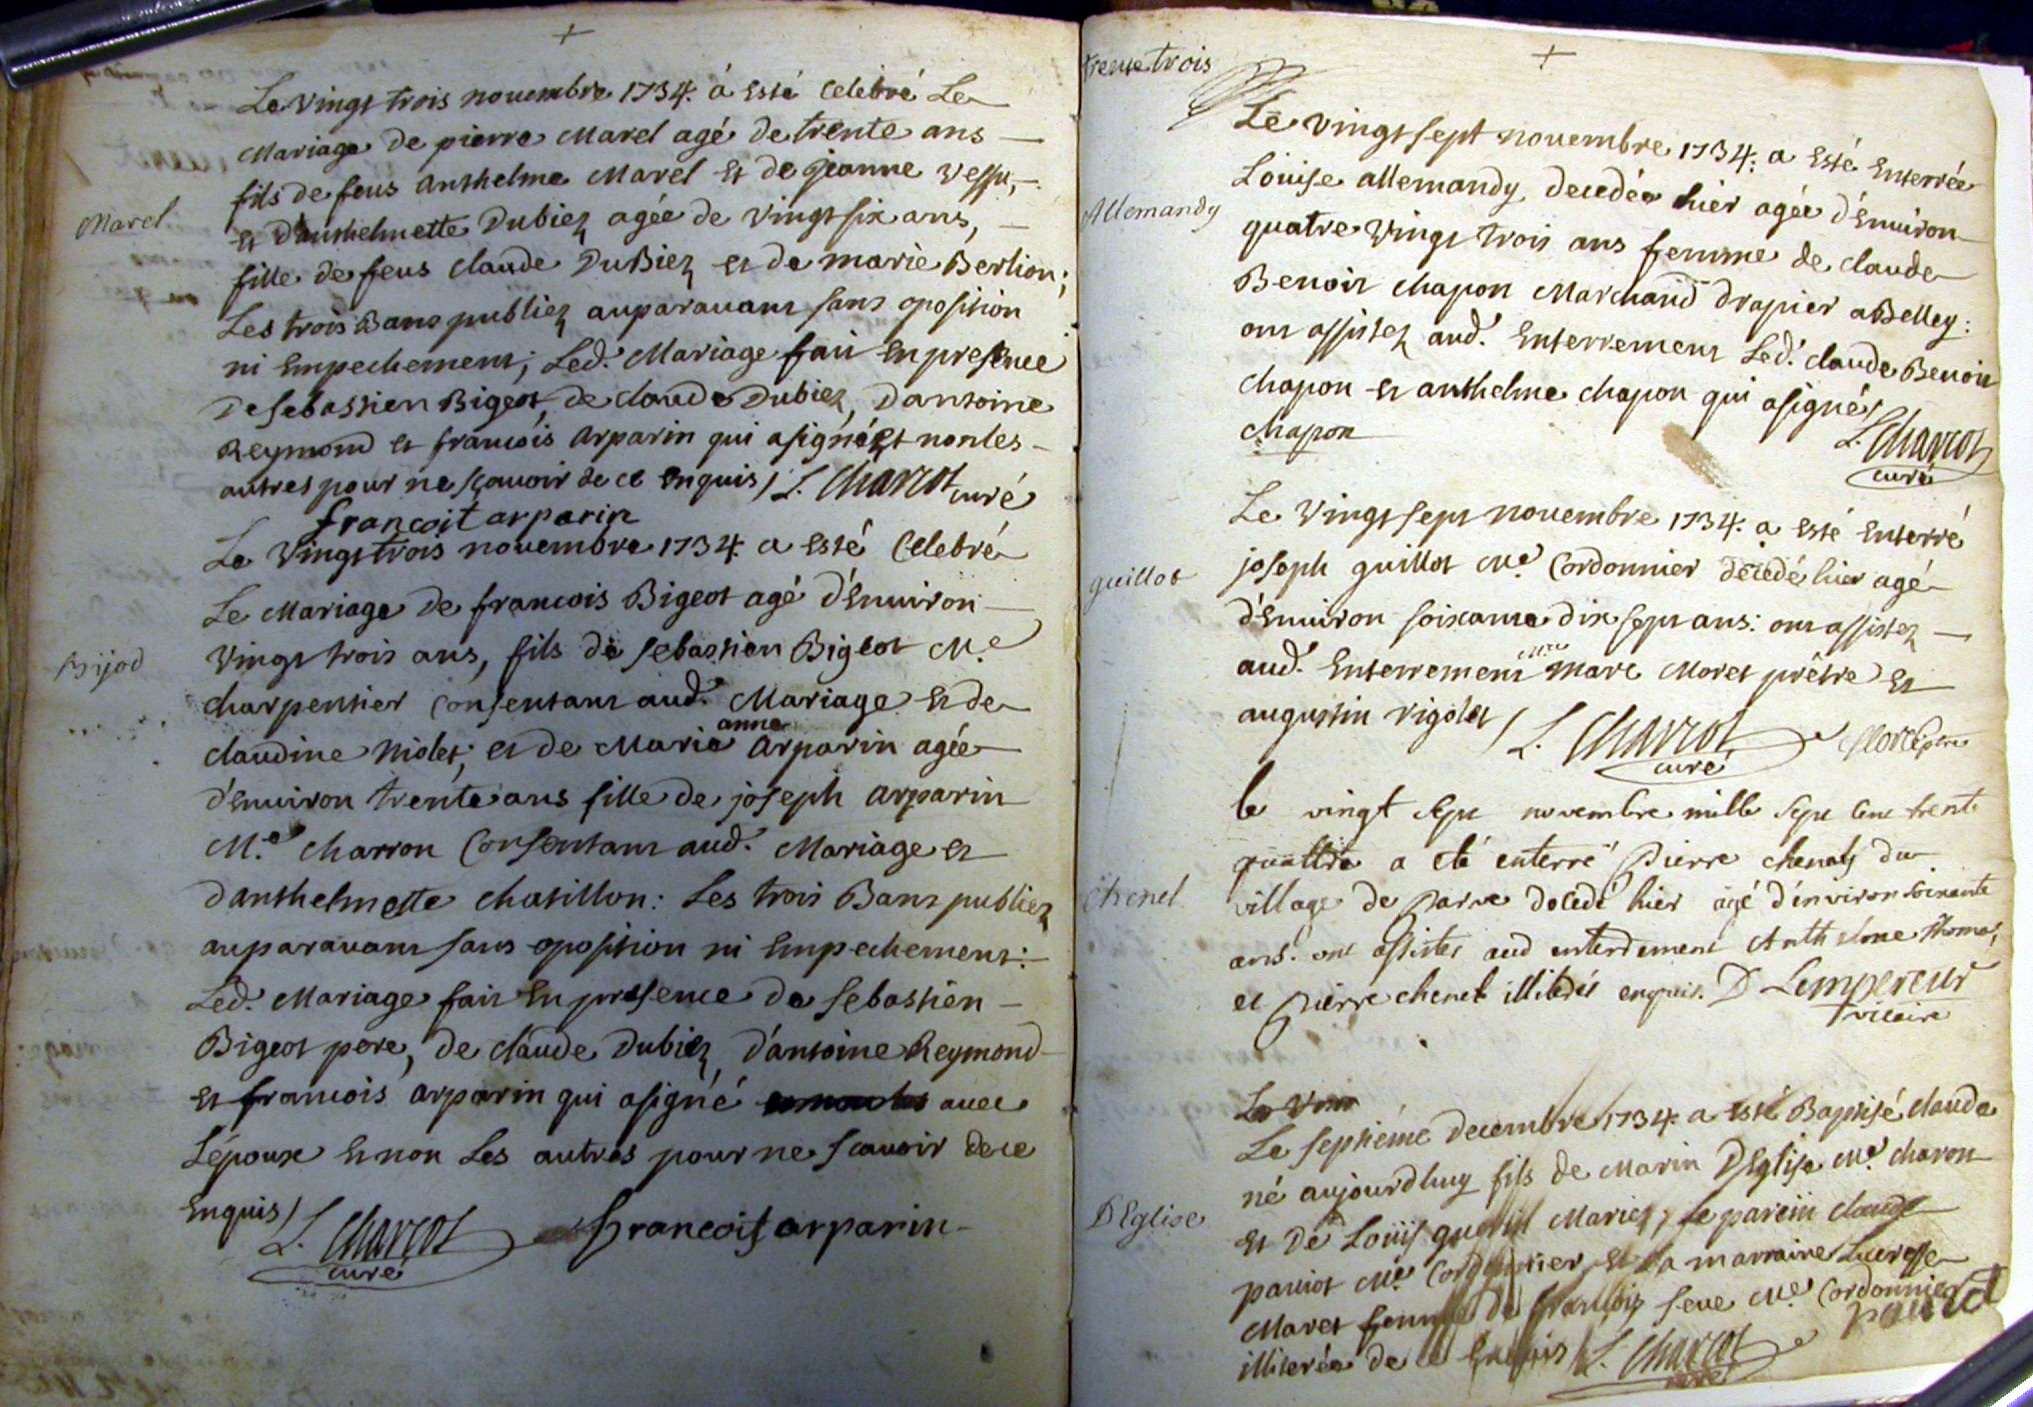 Le vingt trois novembre 1734. á Esté Celebré Le
Mariage de pierre Marel agé de trente ans
fils de feus Anthelme Marel Et de jeanne Vessu,
Marel
Et D'anthelmette Dubiez agée de Vingt six ans,
fille de feus Claude DuBiez et de marie Berlion;
Les trois Bans publiez auparavant sans oposition
ni Empechement; Led. Mariage fait En presence
De Sebastien Bigeot, de Claude Dubiez, D'antoine
Reymond et francois Arparin qui asigné Et non les
autres pour ne sçavoir de ce Enquis / L. Charcot curé
francoit arparin
Le Vingt trois novembre 1734. a Esté Celebré
Le Mariage De francois Bigeot agé d'Environ
Bijod
Vingt trois ans, fils de Sebastien Bigeot Me
charpentier Consentant aud. Mariage Et de
anne
claudine Niolet; et de Marie Arparin agée
d'Environ trente ans fille de joseph Arparin
M.e Charron Consentant aud. Mariage et
d'anthelmette Chatillon: Les trois Bans publiez
auparavant sans oposition ni Empechement:
Led. Mariage fait En presence De Sebastien
Bigeot pere, de Claude Dubiez, d'antoine Reymond
Et francois Arparin qui asigné avec
L'époux Et non Les autres pour ne sçavoir de ce
Enquis /
L. Charcot francoit arparin
curé
trente trois
Le Vingt sept novembre 1734. a Esté Enterrée
Louise allemandy decedée hier agée d'Environ
Allemandy
quatre Vingt trois ans femme de claude
Benoit Chapon Marchand Drapier a Belley:
ont assistez aud. Enterrement Led. claude Benoit
Chapon et anthelme Chapon qui asignés /
Chapon L. Charcot
curé
Le Vingt sept novembre 1734. a Esté Enterré
joseph guillot Me Cordonnier décedé hier agé
guillot
d'Environ soixante dix sept ans: ont assistez
aud. Enterrement Marc Moret prêtre Et
augustin Vigolet / L. Charcot
curé
le vingt sept novembre mille sept cent trente
quattre a eté enterré Pierre chenel du
Chenel
village de Parve decedé hier agé d'environ soixante
ans. ont assistes aud enterrement Anthelme Thomas,
et Pierre chenel illiterés enquis. D Lempereur
vicaire
Le septiéme Decembre 1734. a Esté Baptisé claude
né aujourdhuy fils de Marin DEglise Me charon
DEglise
Et De Louise Mariez, le parein Claude
paviot Me Cordonnier, Et La marraine Lucresse
Maret femme de francois seve Me Cordonnier
paviot
illiterée de ce Enquis / L. Charcot
curé